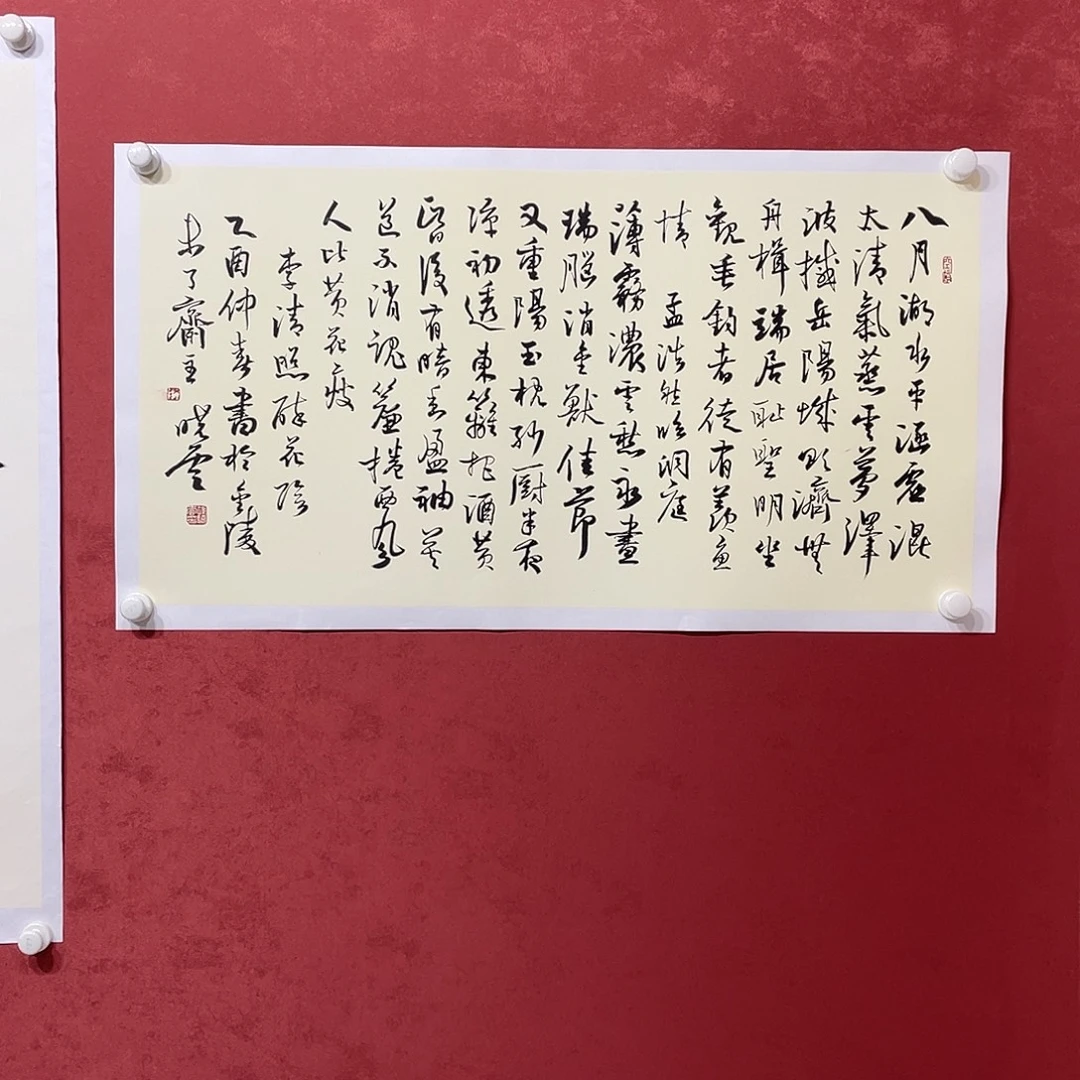 八月湖水平涵虛混
太清氣蒸雲夢澤
波撼岳陽城欲濟無
舟楫端居恥聖明坐
觀垂釣者徒有羨魚
情 孟浩然臨洞庭
薄霧濃雲愁永晝
瑞腦消金獸佳節
又重陽玉枕紗厨半夜
涼初透東籬把酒黃
昏後有暗香盈袖莫
道不消魂簾捲西風
人比黃花瘦
李清照醉花陰
乙酉仲春書於金陵
未了齋主 曉雲